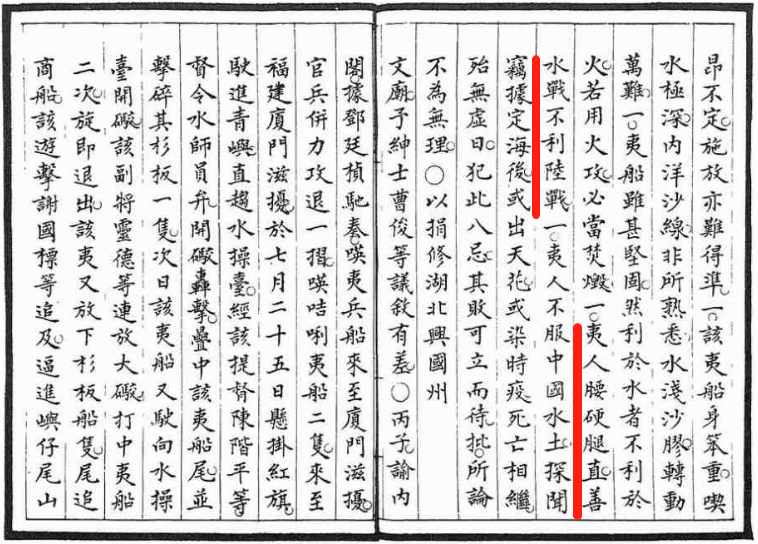 昂不定施放亦難得準一該夷船身笨重喫
水極深內洋沙線非所熟悉水淺沙膠轉動
萬難一夷船雖甚堅固然利於水者不利於
火若用火攻必當焚燬一夷人腰硬腿直善
水戰不利陸戰一夷人不服中國水土探聞
竊據定海後或出天花或染時疫死亡相繼
殆無虛日犯此八忌其敗可立而待批所論
不為無理○以捐修湖北興國州
文廟予紳士曹俊等議敘有差○丙子諭內
閣據鄧廷楨馳奏暎夷兵船來至廈門滋擾
官兵併力攻退一摺暎咭唎夷船二隻來至
福建廈門滋擾於七月二十五日懸掛紅旗
駛進青嶼直趨水操臺經該提督陳階平等
督令水師員弁開礮轟擊疊中該夷船尾並
擊碎其杉板一隻次日該夷船又駛向水操
臺開礮該副將靈德等連放大礮打中夷船
二次旋即退出該夷又放下杉板船隻尾追
商船該遊擊謝國標等追及逼進嶼仔尾山